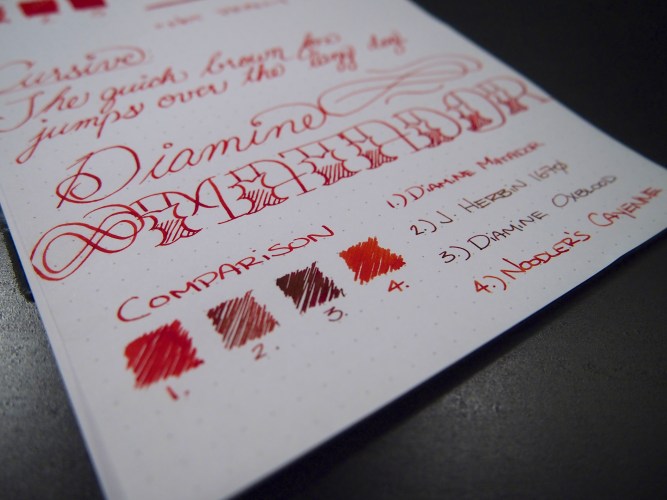 Cursive
The quick brown fox
jumps over the lazy dog
Diamine
MATADOR
COMPARISON
1. 2. 3. 4.
1.) DIAMINE MATADOR
2.) J HERBIN 1670
3.) DIAMINE OXBLOOD
4.) NOODLER'S CAYENNE